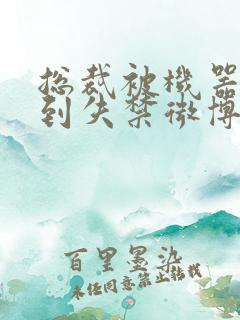 总裁被机器
到失禁微博
百里墨染
未经同意禁止转载